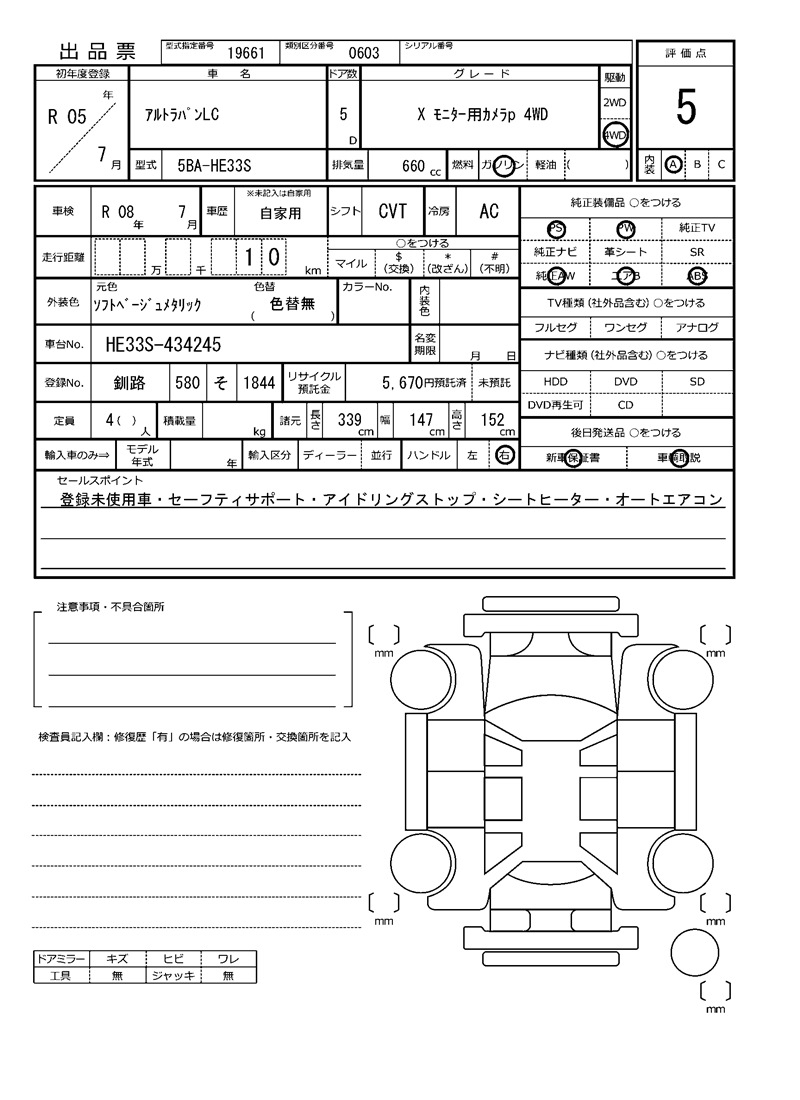 出品票 型式指定番号 19661 類別区分番号 0603 シリアル番号
評価点
5
内装 A B C
初年度登録 車名 ドア数 グレード 駆動
R 05 年 7 月 ｱﾙﾄﾗﾊﾟﾝLC 5 D X ﾓﾆﾀｰ用ｶﾒﾗp 4WD 2WD 4WD
型式 5BA-HE33S 排気量 660 cc 燃料 ガソリン 軽油 ( )
車検 R 08 年 7 月 車歴 ※未記入は自家用 自家用 シフト CVT 冷房 AC
走行距離 万 千 1 0 km ○をつける
マイル $(交換) *(改ざん) #(不明)
外装色 元色 ｿﾌﾄﾍﾞｰｼﾞｭﾒﾀﾘｯｸ 色替 ( 色替無 ) カラーNo. 内装色
車台No. HE33S-434245 名変期限 月 日
登録No. 釧路 580 そ 1844 リサイクル預託金 5,670円預託済 未預託
定員 4 ( ) 人 積載量 kg 諸元 長さ 339 cm 幅 147 cm 高さ 152 cm
輸入車のみ⇒ モデル年式 年 輸入区分 ディーラー 並行 ハンドル 左 右
純正装備品 ○をつける
PS PW 純正TV
純正ナビ 革シート SR
純正AW エアB ABS
TV種類 (社外品含む) ○をつける
フルセグ ワンセグ アナログ
ナビ種類 (社外品含む) ○をつける
HDD DVD SD
DVD再生可 CD
後日発送品 ○をつける
新車保証書 車輌取説
セールスポイント
登録未使用車・セーフティサポート・アイドリングストップ・シートヒーター・オートエアコン
注意事項・不具合箇所
検査員記入欄：修復歴「有」の場合は修復箇所・交換箇所を記入
ドアミラー キズ ヒビ ワレ
工具 無 ジャッキ 無
mm mm
mm mm
mm